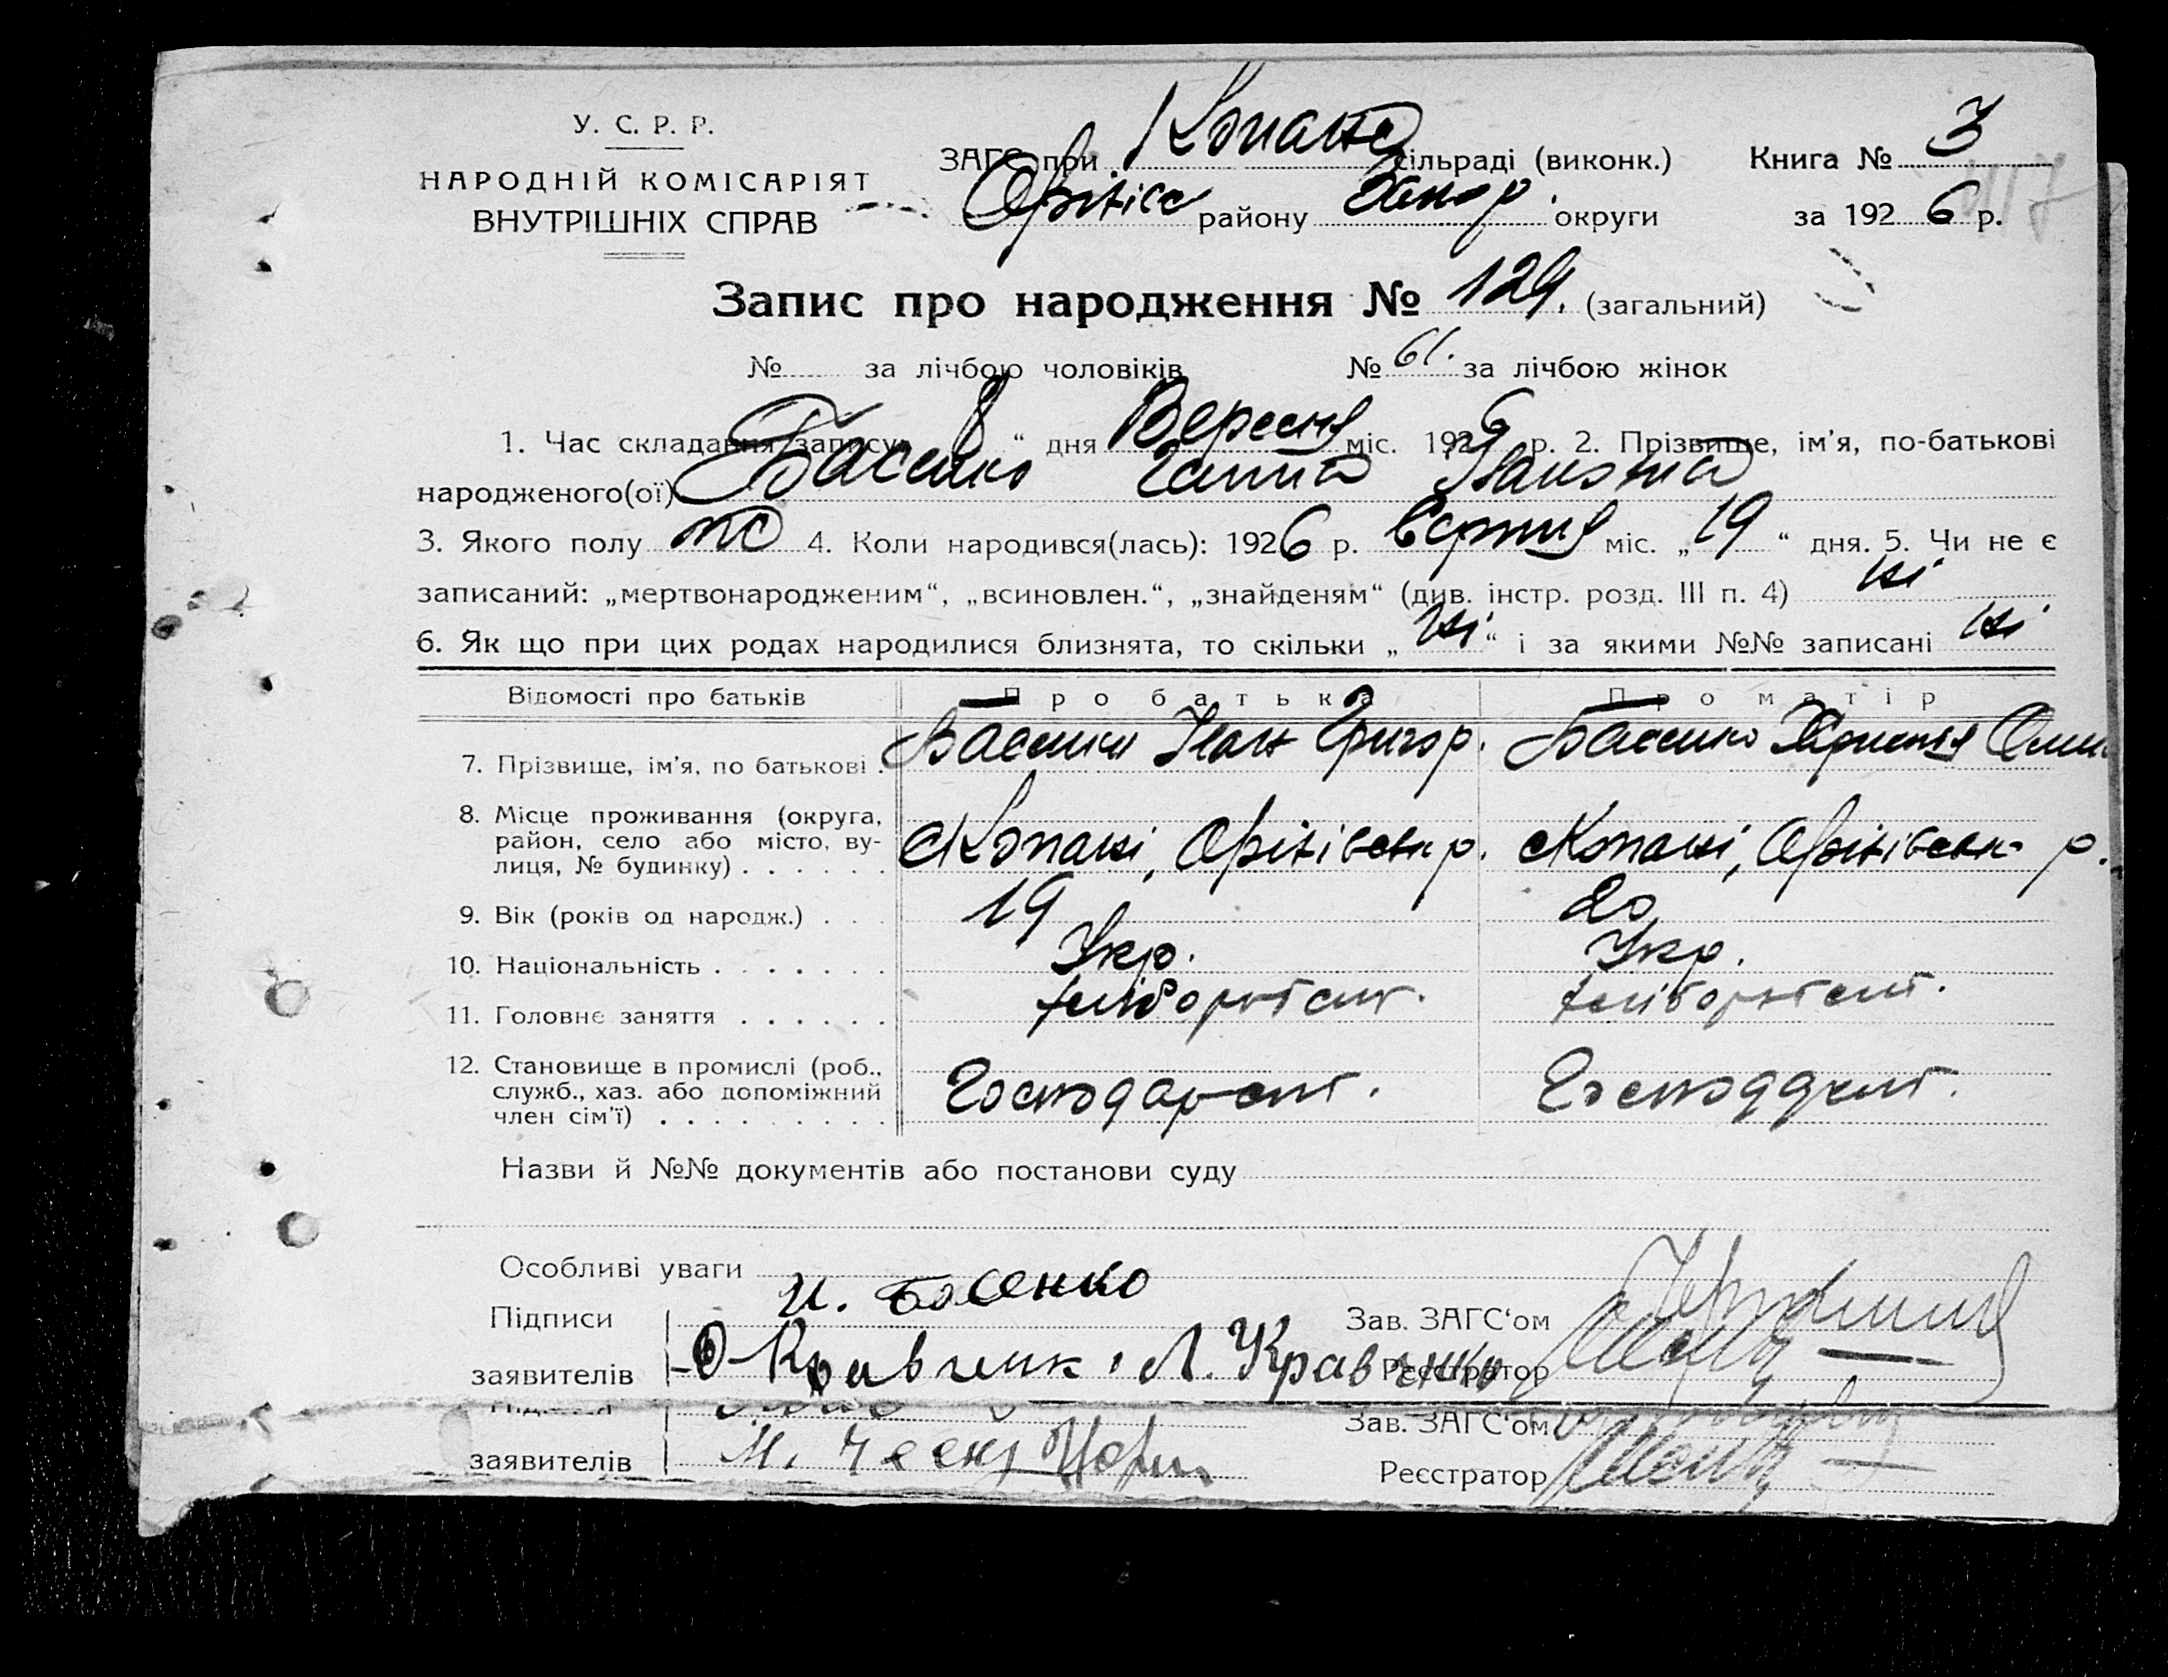 У. С. Р. Р.
НАРОДНІЙ КОМІСАРІЯТ
ВНУТРІШНІХ СПРАВ
ЗАГС при Копанс сільраді (виконк.)
Оріхівс району Запор. округи
Книга № 3
за 1926 р.
Запис про народження № 129. (загальний)
№ за лічбою чоловіків № 61. за лічбою жінок
1. Час складання запису „ 8 “ дня Вересня міс. 1926 р. 2. Прізвище, ім'я, по-батькові
народженого(ої) Басенко Ганна Івановна
3. Якого полу ж 4. Коли народився(лась): 1926 р. Серпня міс. „ 19 “ дня. 5. Чи не є
записаний: „мертвонародженим“, „всиновлен.“, „знайденям“ (див. інстр. розд. III п. 4) ні
6. Як що при цих родах народилися близнята, то скільки „ ні “ і за якими №№ записані ні
Відомості про батьків Про батька Про матір
7. Прізвище, ім'я, по батькові . Басенко Іван Григор. Басенко Христя
8. Місце проживання (округа, район, село або місто, вулиця, № будинку) . . . . . . с Копані, Оріхівськ р. с Копані, Оріхівськ р.
9. Вік (років од народж.) . . . 19 20
10. Національність . . . . . . . Укр. Укр.
11. Головнє заняття . . . . . . хліборобст. хліборобст.
12. Становище в промислі (роб., служб., хаз. або допоміжний член сім'ї) . . . . . . . . . Господарст. Господарст.
Назви й №№ документів або постанови суду
Особливі уваги
Підписи И. Басенко Зав. ЗАГС‘ом
заявителів Кравченк Л. Кравченко Реєстратор
Зав. ЗАГС‘ом
заявителів М. Реєстратор